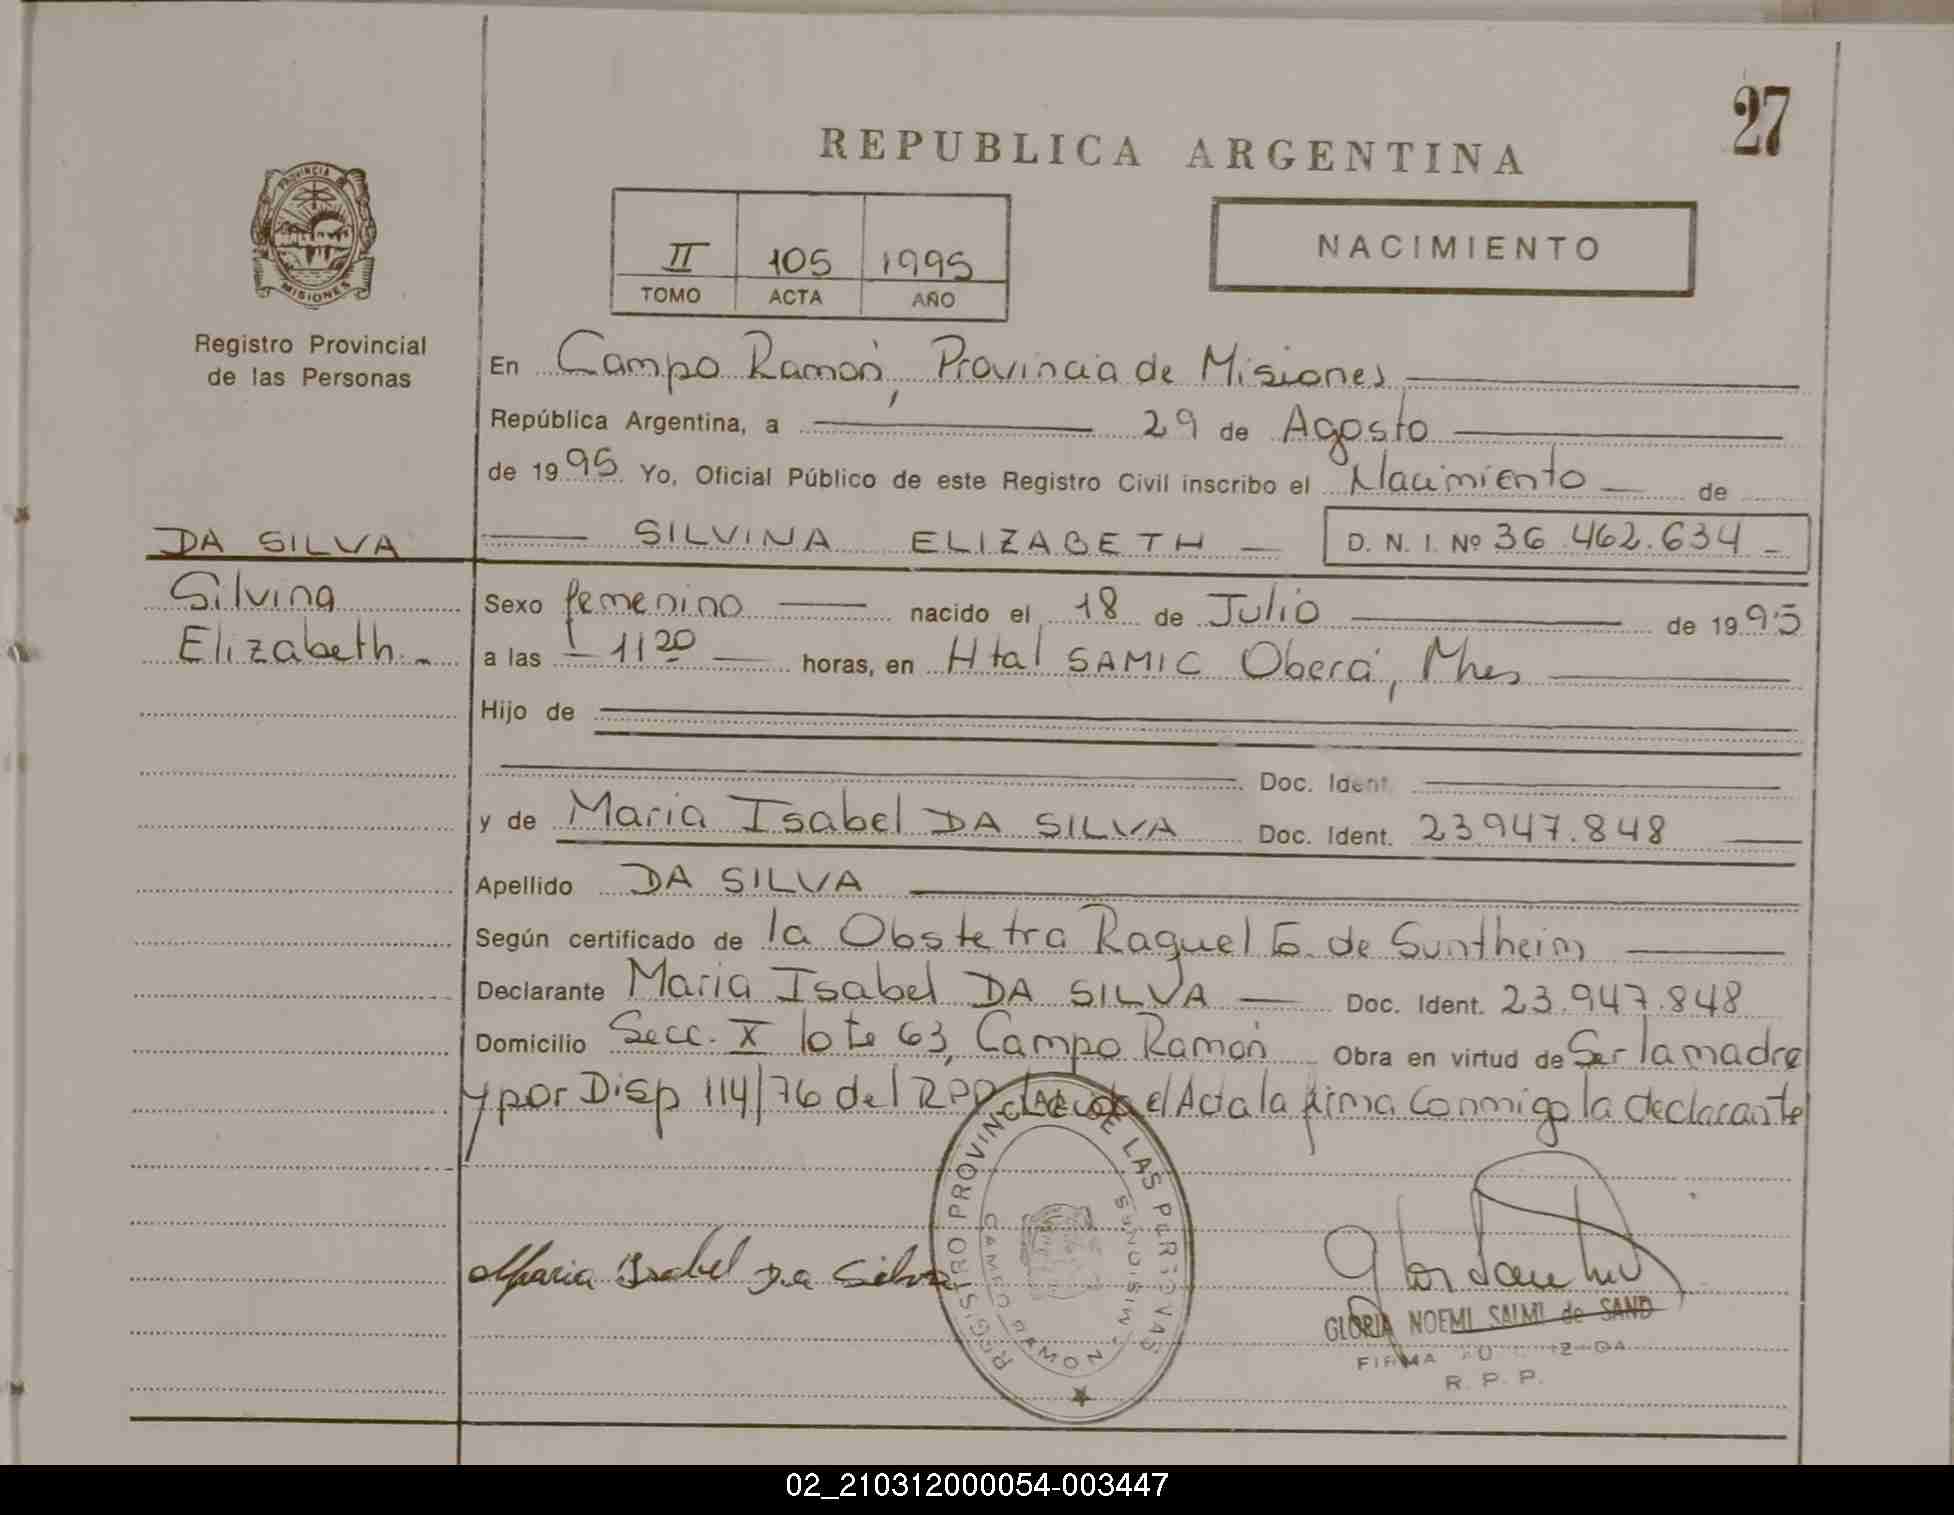 27
REPUBLICA ARGENTINA
PROVINCIA DE
MISIONES
Registro Provincial
de las Personas
II 105 1995
TOMO ACTA AÑO
NACIMIENTO
En Campo Ramón, Provincia de Misiones
República Argentina, a 29 de Agosto
de 1995 Yo, Oficial Público de este Registro Civil inscribo el Nacimiento de
DA SILVA
SILVINA ELIZABETH D. N. I. Nº 36.462.634
Silvina
Elizabeth.
Sexo femenino nacido el 18 de Julio de 1995
a las 11 20 horas, en Htal SAMIC Oberá, Mnes
Hijo de
Doc. Ident.
y de Maria Isabel DA SILVA Doc. Ident. 23.947.848
Apellido DA SILVA
Según certificado de la Obstetra Raquel G. de Suntheim
Declarante Maria Isabel DA SILVA Doc. Ident. 23.947.848
Domicilio Secc. X lote 63, Campo Ramón Obra en virtud de Ser la madre
y por Disp 114/76 del RPP el Acta la firma conmigo la declarante
REGISTRO PROVINCIAL DE LAS PERSONAS
CAMPO RAMON - MISIONES
Maria Isabel Da Silva
GLORIA NOEMI SALMI de SAND
FIRMA
R. P. P.
02_210312000054-003447